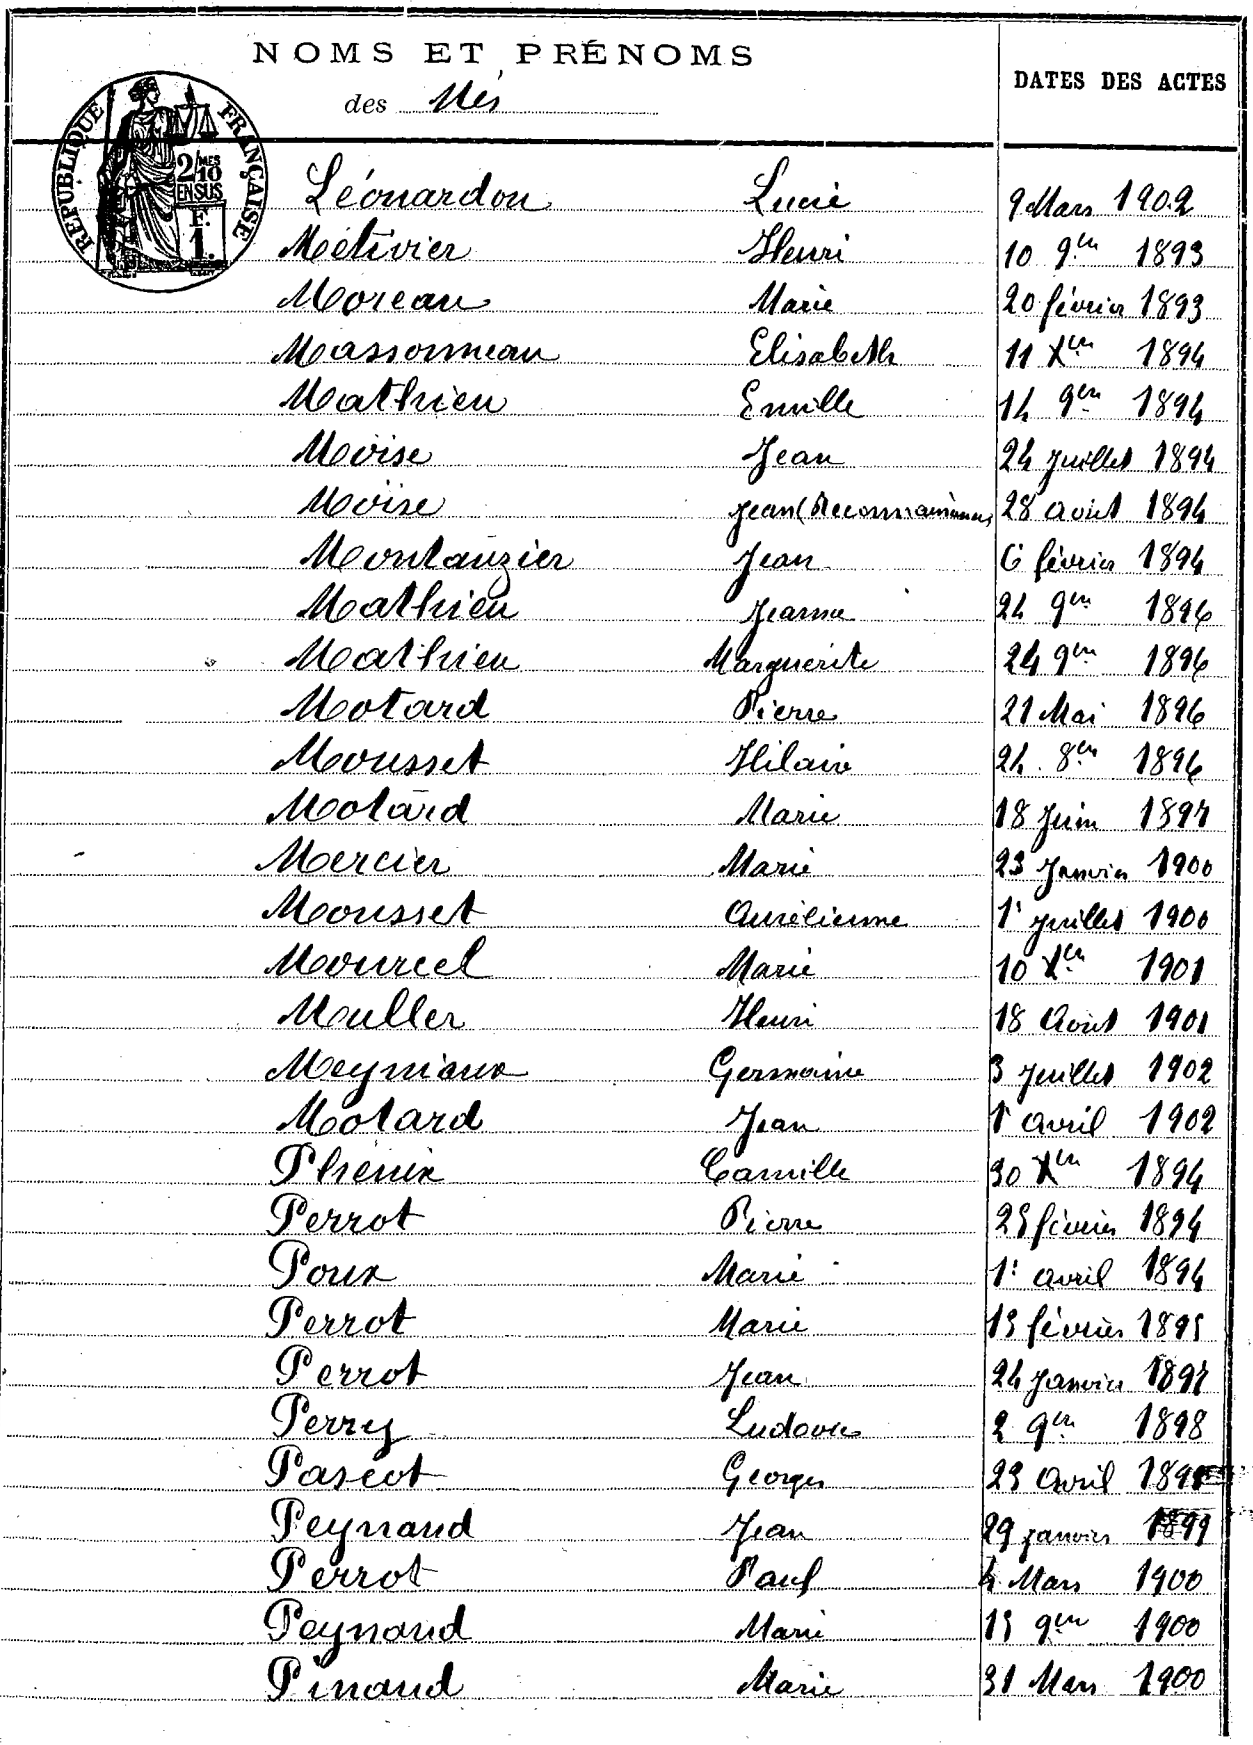 NOMS ET PRÉNOMS
des Nés
DATES DES ACTES
RÉPUBLIQUE FRANÇAISE
2/10 MES
EN SUS
F.
1.
Léonardon Lucie 9 Mars 1902
Métivier Henri 10 9bre 1893
Moreau Marie 20 février 1893
Massonneau Elisabeth 11 Xbre 1894
Mathieu Emille 14 9bre 1894
Moïse Jean 24 Juillet 1894
Moïse Jean (Reconnaissance 28 août 1894
Montauzier Jean 6 février 1894
Mathieu Jeanne 24 9bre 1896
Mathieu Marguerite 24 9bre 1896
Motard Pierre 21 Mai 1896
Mousset Hilaire 24 8bre 1896
Motard Marie 18 Juin 1897
Mercier Marie 23 Janvier 1900
Mousset Aurélienne 1r juillet 1900
Mourcel Marie 10 Xbre 1901
Muller Henri 18 Août 1901
Meyniaux Germaine 3 Juillet 1902
Motard Jean 1r avril 1902
Phénix Camille 30 Xbre 1894
Perrot Pierre 25 février 1894
Poux Marie 1r avril 1894
Perrot Marie 15 février 1895
Perrot Jean 24 Janvier 1897
Perry Ludovic 2 9bre 1898
Pascot Georges 23 Avril
Peynaud Jean 29 janvier 1899
Perrot Paul 4 Mars 1900
Peynaud Marie 15 9bre 1900
Pinaud Marie 31 Mars 1900